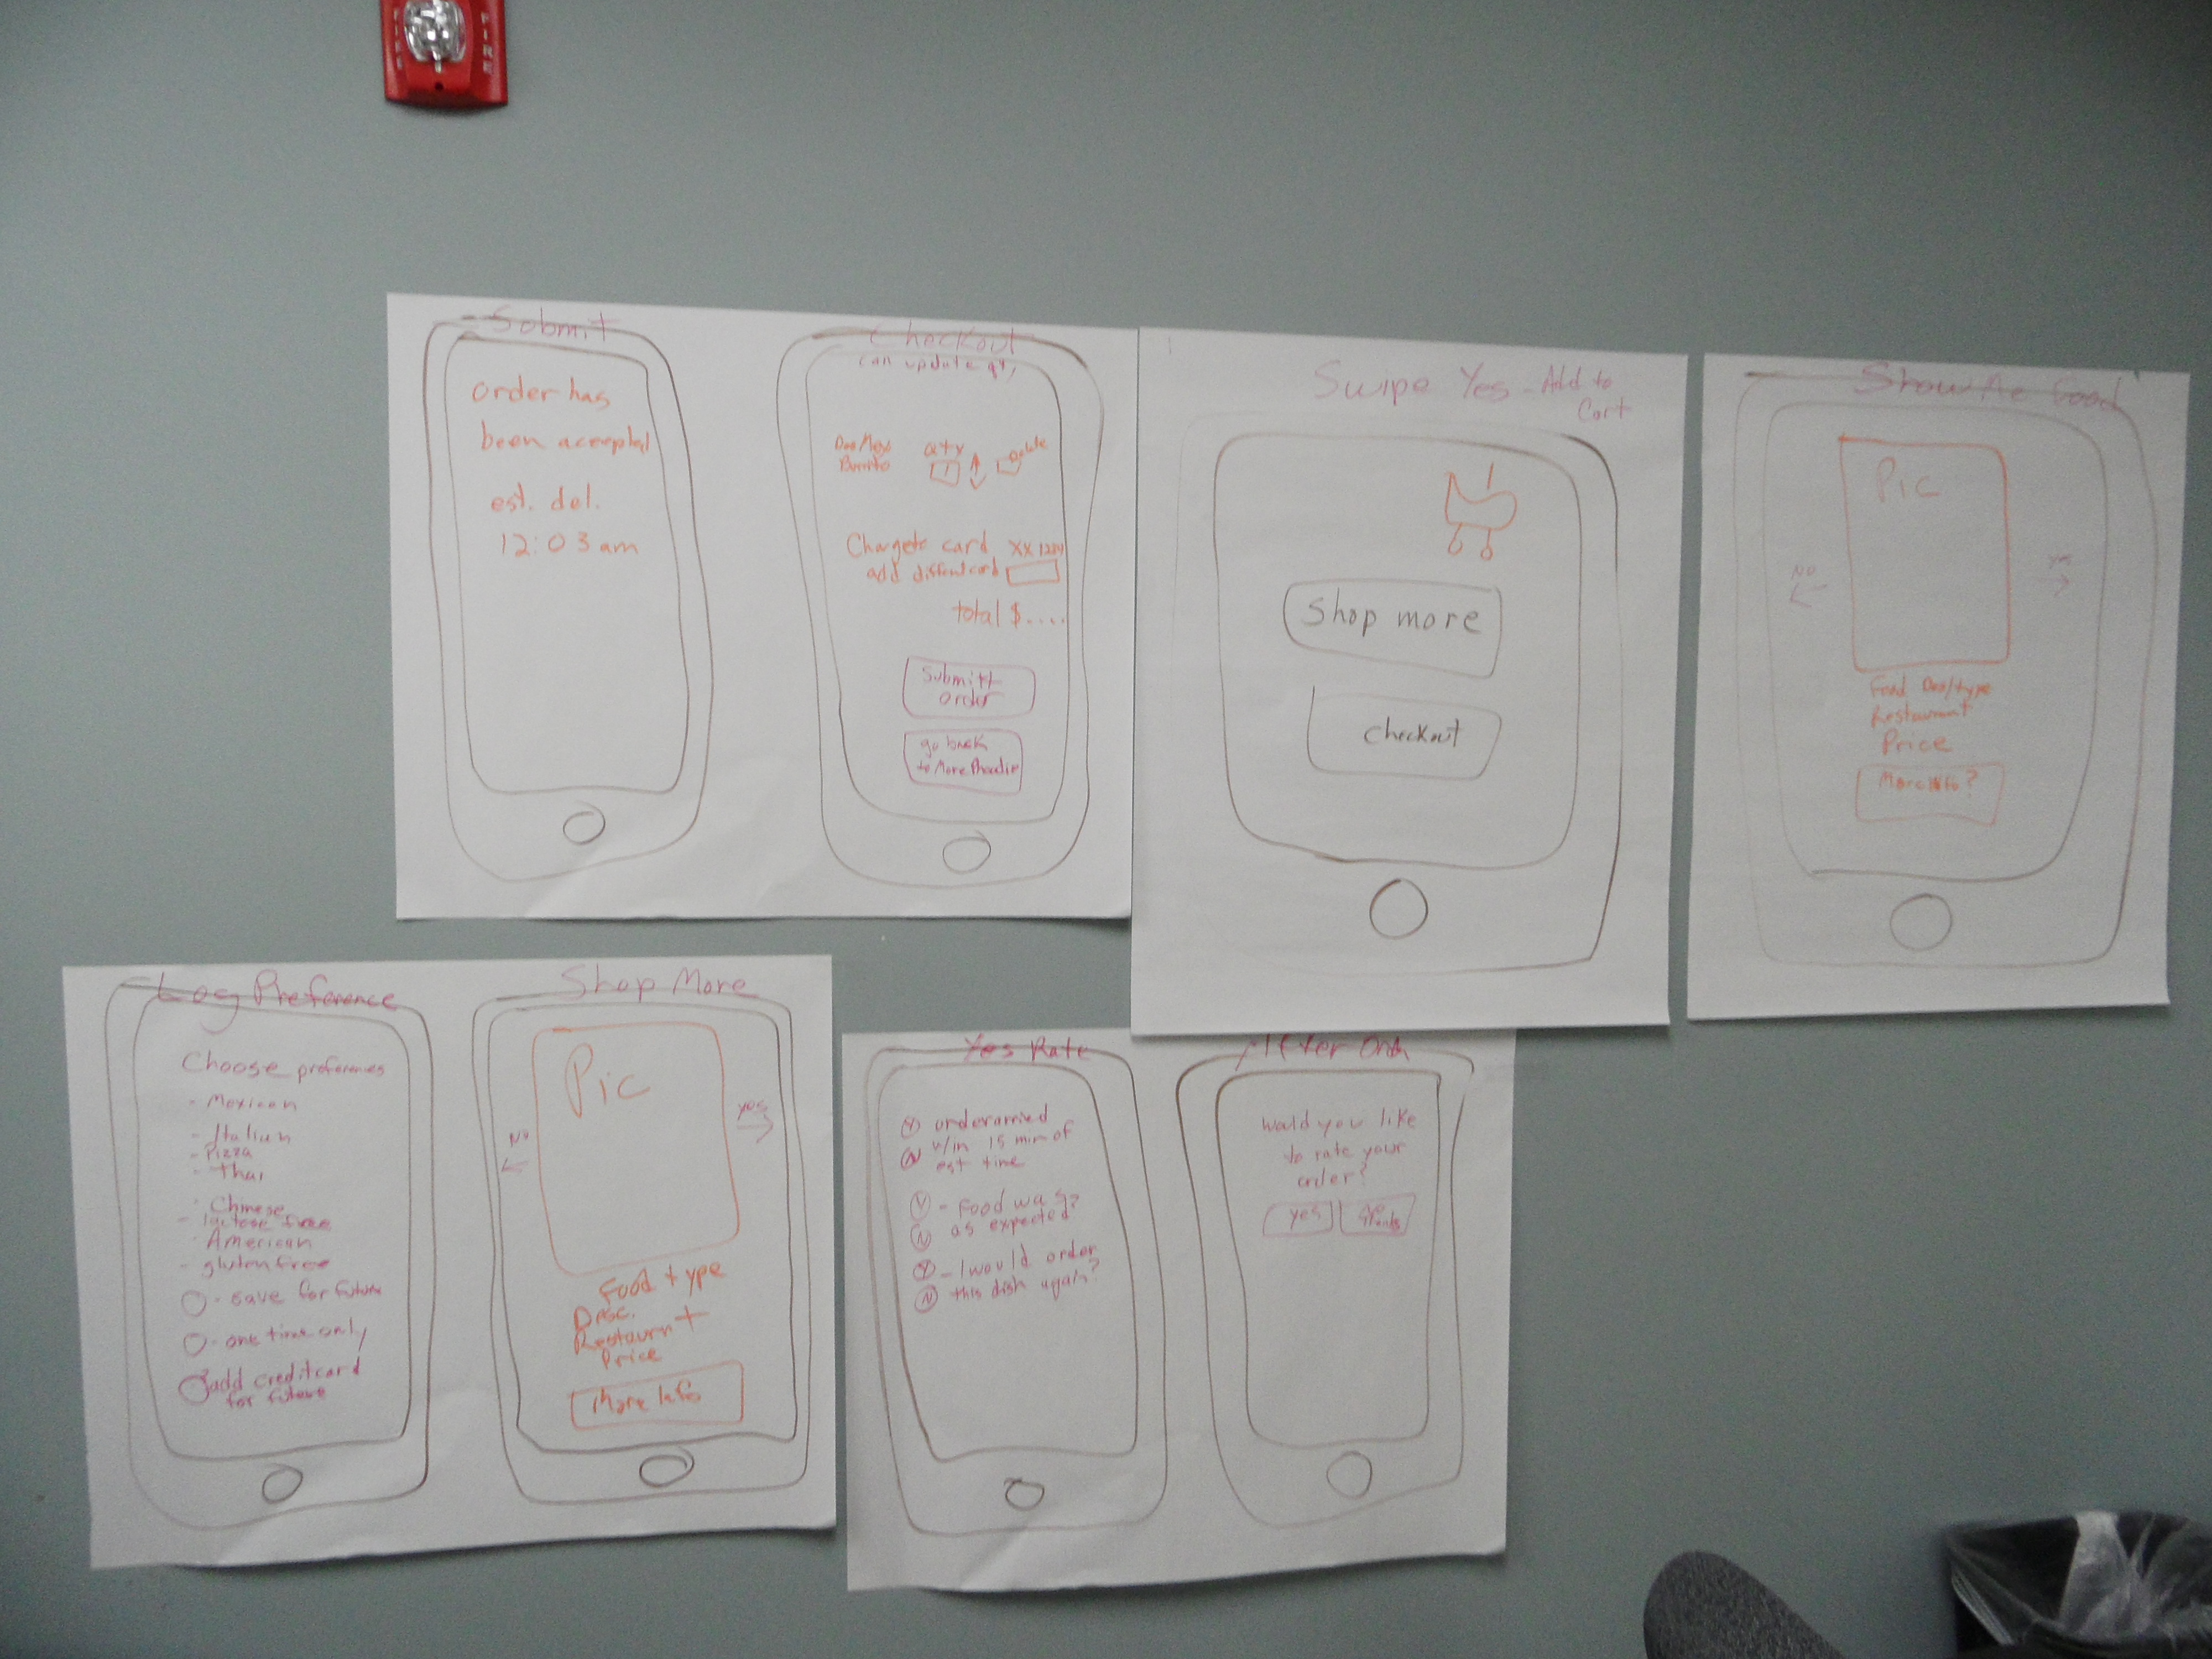 FIRE
Submit
order has
been accepted
est. del.
12:03 am
Checkout
can update qty
Burrito
QTY
1
delete
Charge to card XX 1234
add different card
total $....
Submitt
order
go back
to More Phoodie
Swipe Yes - Add to
Cart
Shop more
Checkout
Show Me Food
Pic
NO
yes
Food Des/type
Restaurant
Price
More info?
Log Preference
Choose preferences
- Mexican
- Italian
- Pizza
- Thai
- Chinese
- lactose free
- American
- gluten free
- save for future
- one time only
add credit card
for future
Shop More
Pic
NO
yes
Food type
Desc.
Restaurnt
Price
More Info
Yes Rate
Y order arrived
N w/in 15 min of
est time
Y - Food was?
N as expected?
Y - I would order
N this dish again?
After
would you like
to rate your
order?
yes